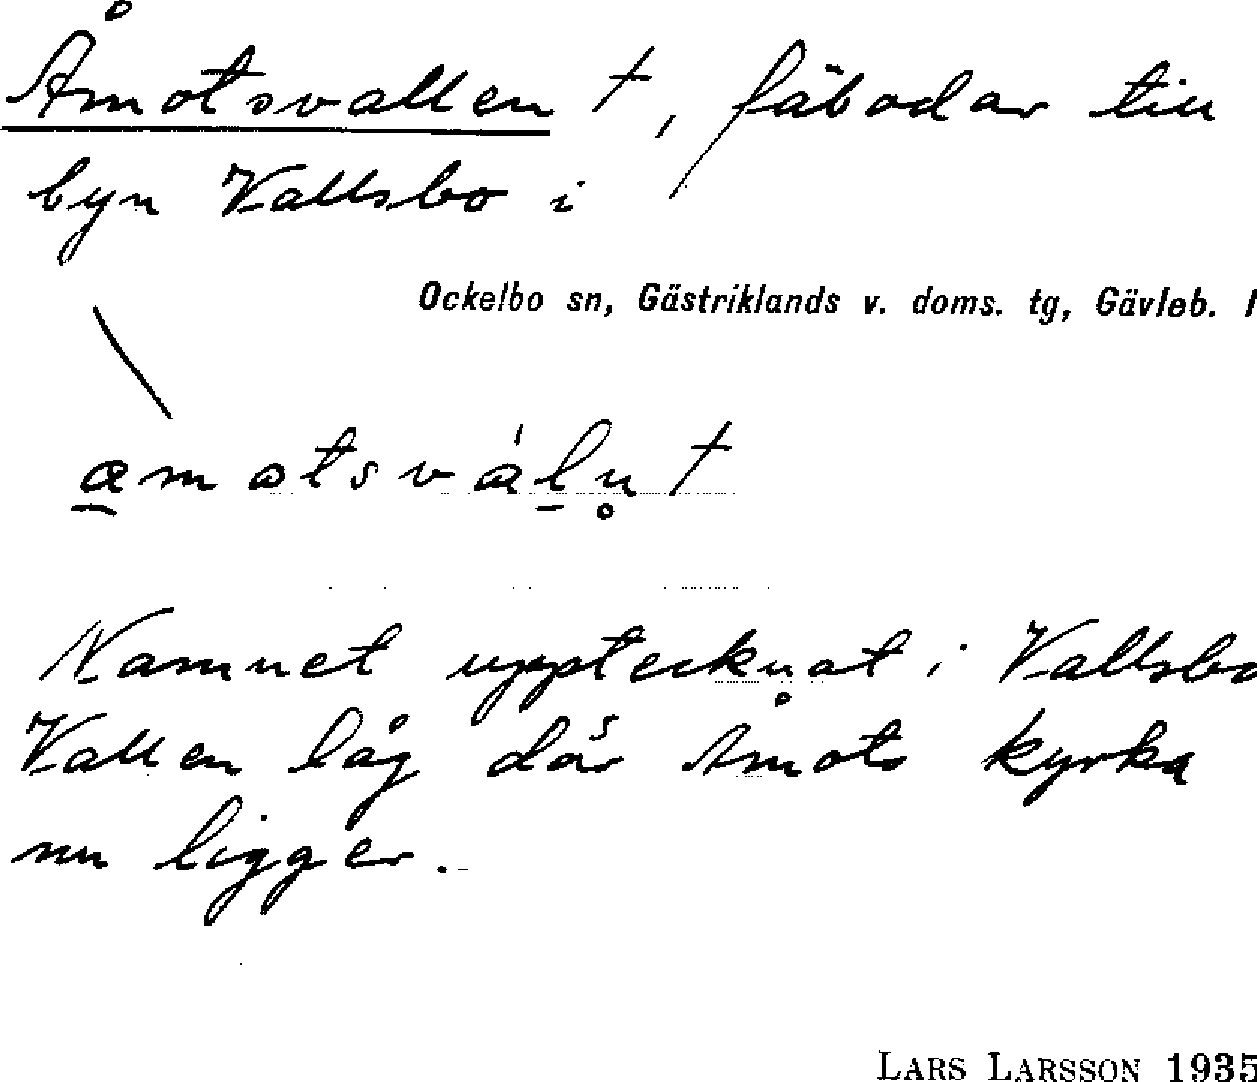 Åmotsvallen †, fäbodar till
byn Vallsbo i
Ockelbo sn, Gästriklands v. doms. tg, Gävleb. l
Namnet upptecknat i Vallsbo
Vallen låg där Åmots kyrka
nu ligger.
LARS LARSSON 1935